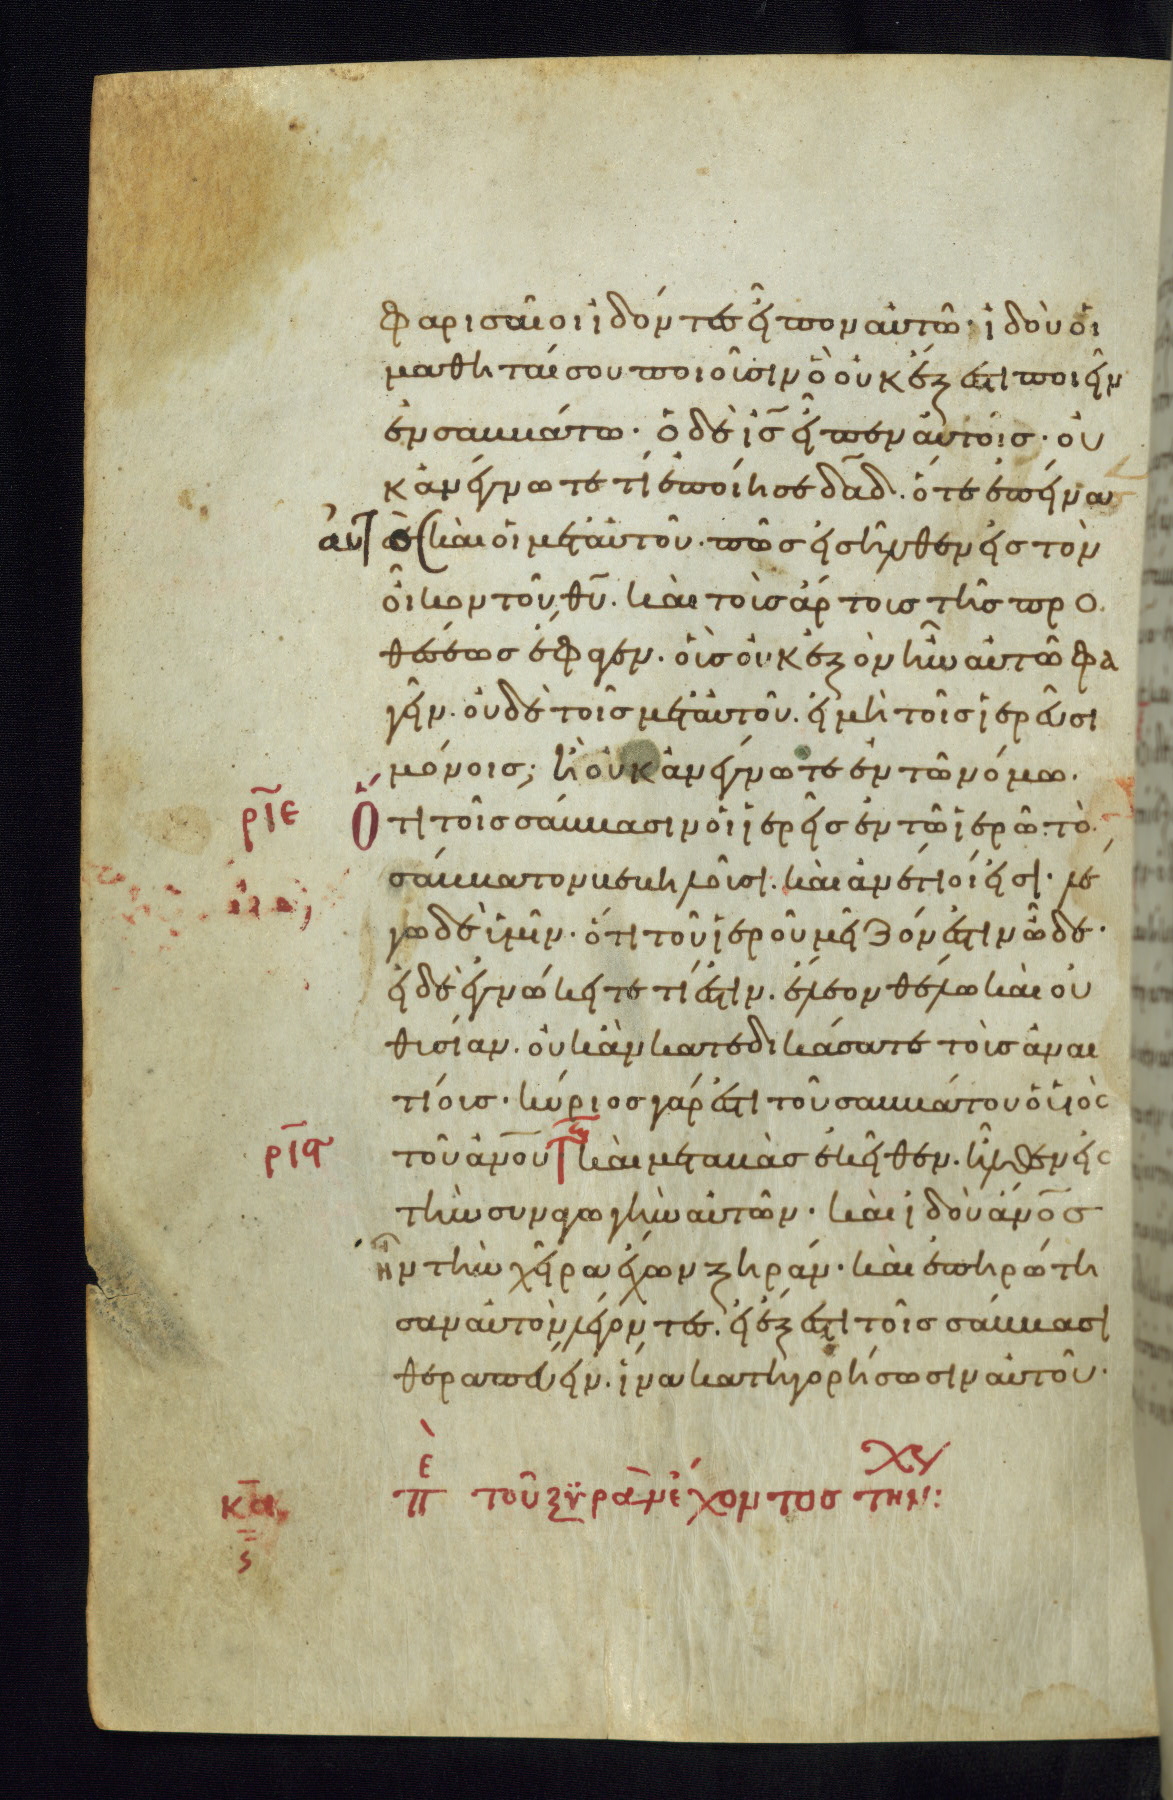 φαρισαῖοι ἰδόντες εἶπον αὐτῶ· ἰδοὺ οἱ
μαθηταί σου ποιοῦσιν ὃ οὐκ ἔξεστι ποιεῖν
ἐν σαββάτω. ὁ δὲ ι̅σ̅ εἶπεν αὐτοῖς. οὐ
κ ἀνέγνωτε τί ἐποίησε δα̅δ. ὅτε ἐπείνασ
αὐτὸσ καὶ οἱ μετ αὐτοῦ. πῶς εἰσῆλθεν εἰς τὸν
οἶκον τοῦ θ̅υ̅. καὶ τοὺς ἄρτους τῆς προ
θέσεως ἔφαγεν. οἷς οὐκ ἐξὸν ἦν αὐτῶ φα
γεῖν. οὐδὲ τοῖς μετ αὐτοῦ. εἰ μὴ τοῖς ἱερεῦσι
μόνοις; ἢ οὐκ ἀνέγνωτε ἐν τῶ νόμω.
ρ̅ι̅ε̅ Ὅτι τοῖς σάββασιν οἱ ἱερεῖς ἐν τῶ ἱερῶ τὸ
σάββατον βεβηλοῦσι. καὶ ἀναίτιοί εἰσι. λέ
γω δὲ ὑμῖν. ὅτι τοῦ ἱεροῦ μεῖζόν ἐστιν ὧδε.
εἰ δὲ ἐγνώκειτε τί ἐστιν. ἔλεον θέλω καὶ οὐ
θυσίαν. οὐκ ἂν κατεδικάσατε τοὺς ἀναι
τίους. κύριος γάρ ἐστι τοῦ σαββάτου ὁ υἱὸς
ρ̅ι̅ϛ̅ τοῦ ἀν̅ου καὶ μεταβὰς ἐκεῖθεν. ἦλθεν εἰς
τὴν συναγωγὴν αὐτῶν. καὶ ἰδοὺ ἄν̅ος
ἦν τὴν χεῖρα ἔχων ξηράν. καὶ ἐπηρώτη
σαν αὐτὸν λέγοντες. εἰ ἔξεστι τοῖς σάββασι
θεραπεύειν. ἵνα κατηγορήσωσιν αὐτοῦ.
κ̅α̅ πε τοῦ ξυρὰν ἔχοντος τὴν χυ: